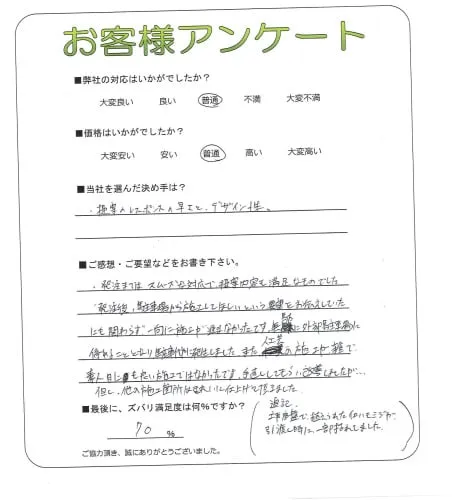 お客様アンケート
■弊社の対応はいかがでしたか？
大変良い 良い 普通 不満 大変不満
■価格はいかがでしたか？
大変安い 安い 普通 高い 大変高い
■当社を選んだ決め手は？
・提案のレスポンスの早さと、デザイン性。
■ご感想・ご要望などをお書き下さい。
・発注まではスムーズな対応で、提案内容も満足なものでした
発注後、駐車場から施工してほしいという要望をお伝えしていた
にも関わらず一向に施工が進まなかったです。に外部駐車場に
停めることとなり駐車代が発生しました。また人工芝の施工が雑で、
素人目にも良い施工ではなかったです。手直ししてもらい改善しましたが…
但し、他の施工箇所はきれいに仕上げて頂きました。
■最後に、ズバリ満足度は何%ですか？
70 %
追記
で、植えられたイロハモミジが、
引渡し時に、一部枯れてました。
ご協力頂き、誠にありがとうございました。